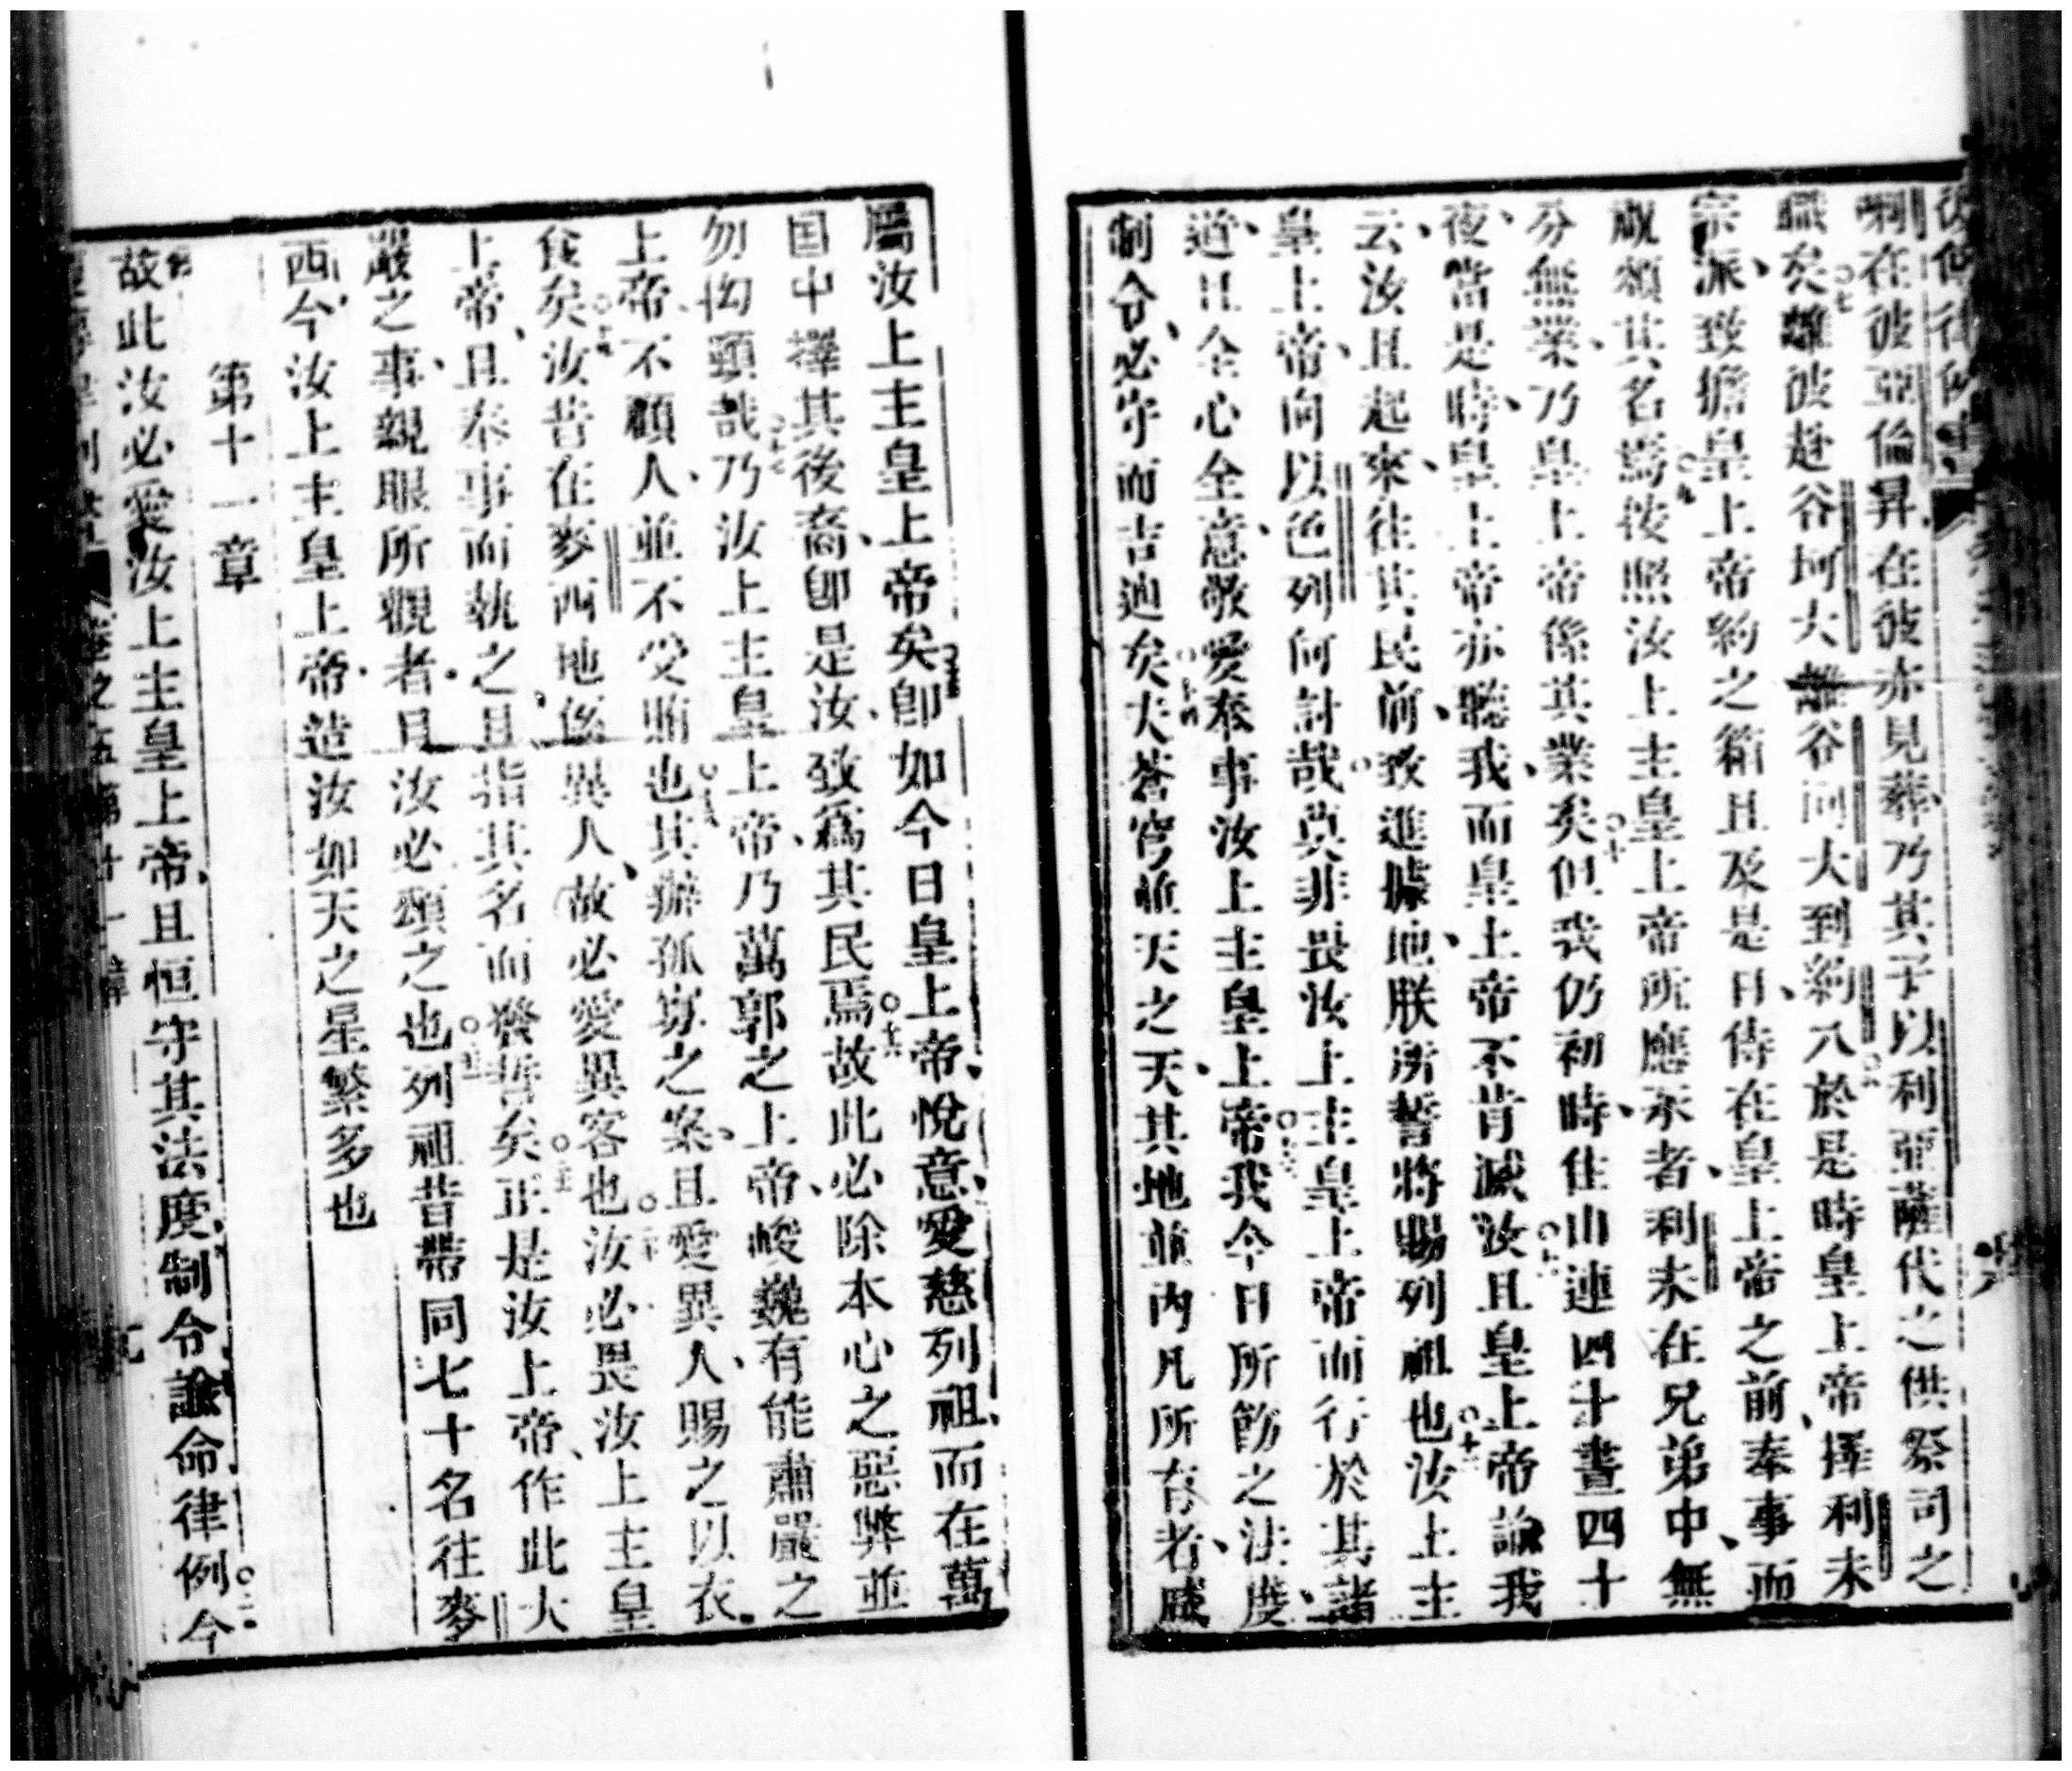 喇在彼亞倫昇在彼亦見葬乃其子以利亞薩代之供祭司之
職矣○七離彼赴谷坷大離谷坷大到約八於是時皇上帝擇利未
宗派致擔皇上帝約之箱且及是日侍在皇上帝之前奉事而
祝頌其名焉○九按照汝上主皇上帝所應承者利未在兄弟中無
分無業乃皇上帝係其業矣○十但我仍初時住山連四十晝四十
夜當是時皇上帝亦聽我而皇上帝不肯滅汝且皇上帝諭我
云汝且起來往其民前致進據地朕所誓將賜列祖也○十二汝上主
皇上帝向以色列何計哉莫非畏汝上主皇上帝而行於其諸
道且全心全意敬愛奉事汝上主皇上帝○十三我今日所飭之法度
制令必守而吉迪矣○十四夫蒼穹並天之天其地並內凡所有者咸
屬汝上主皇上帝矣○十五即如今日皇上帝悅意愛慈列祖而在萬
国中擇其後裔卽是汝致爲其民焉○十六故此必除本心之惡弊並
勿拗頸哉○十七乃汝上主皇上帝乃萬郭之上帝峻巍有能肅嚴之
上帝不顧人並不受賄也○十八其辦孤寡之案且愛異人賜之以衣
食矣○十九汝昔在麥西地係異人故必愛異客也○二十汝必畏汝上主皇
上帝且奉事而執之且指其名而發誓矣○二十一正是汝上帝作此大
嚴之事親眼所觀者且汝必頌之也○二十二列祖昔帶同七十名往麥
西今汝上主皇上帝造汝如天之星繁多也
第十一章
故此汝必愛汝上主皇上帝且恒守其法度制令諭命律例○二今
卷之五第十一章